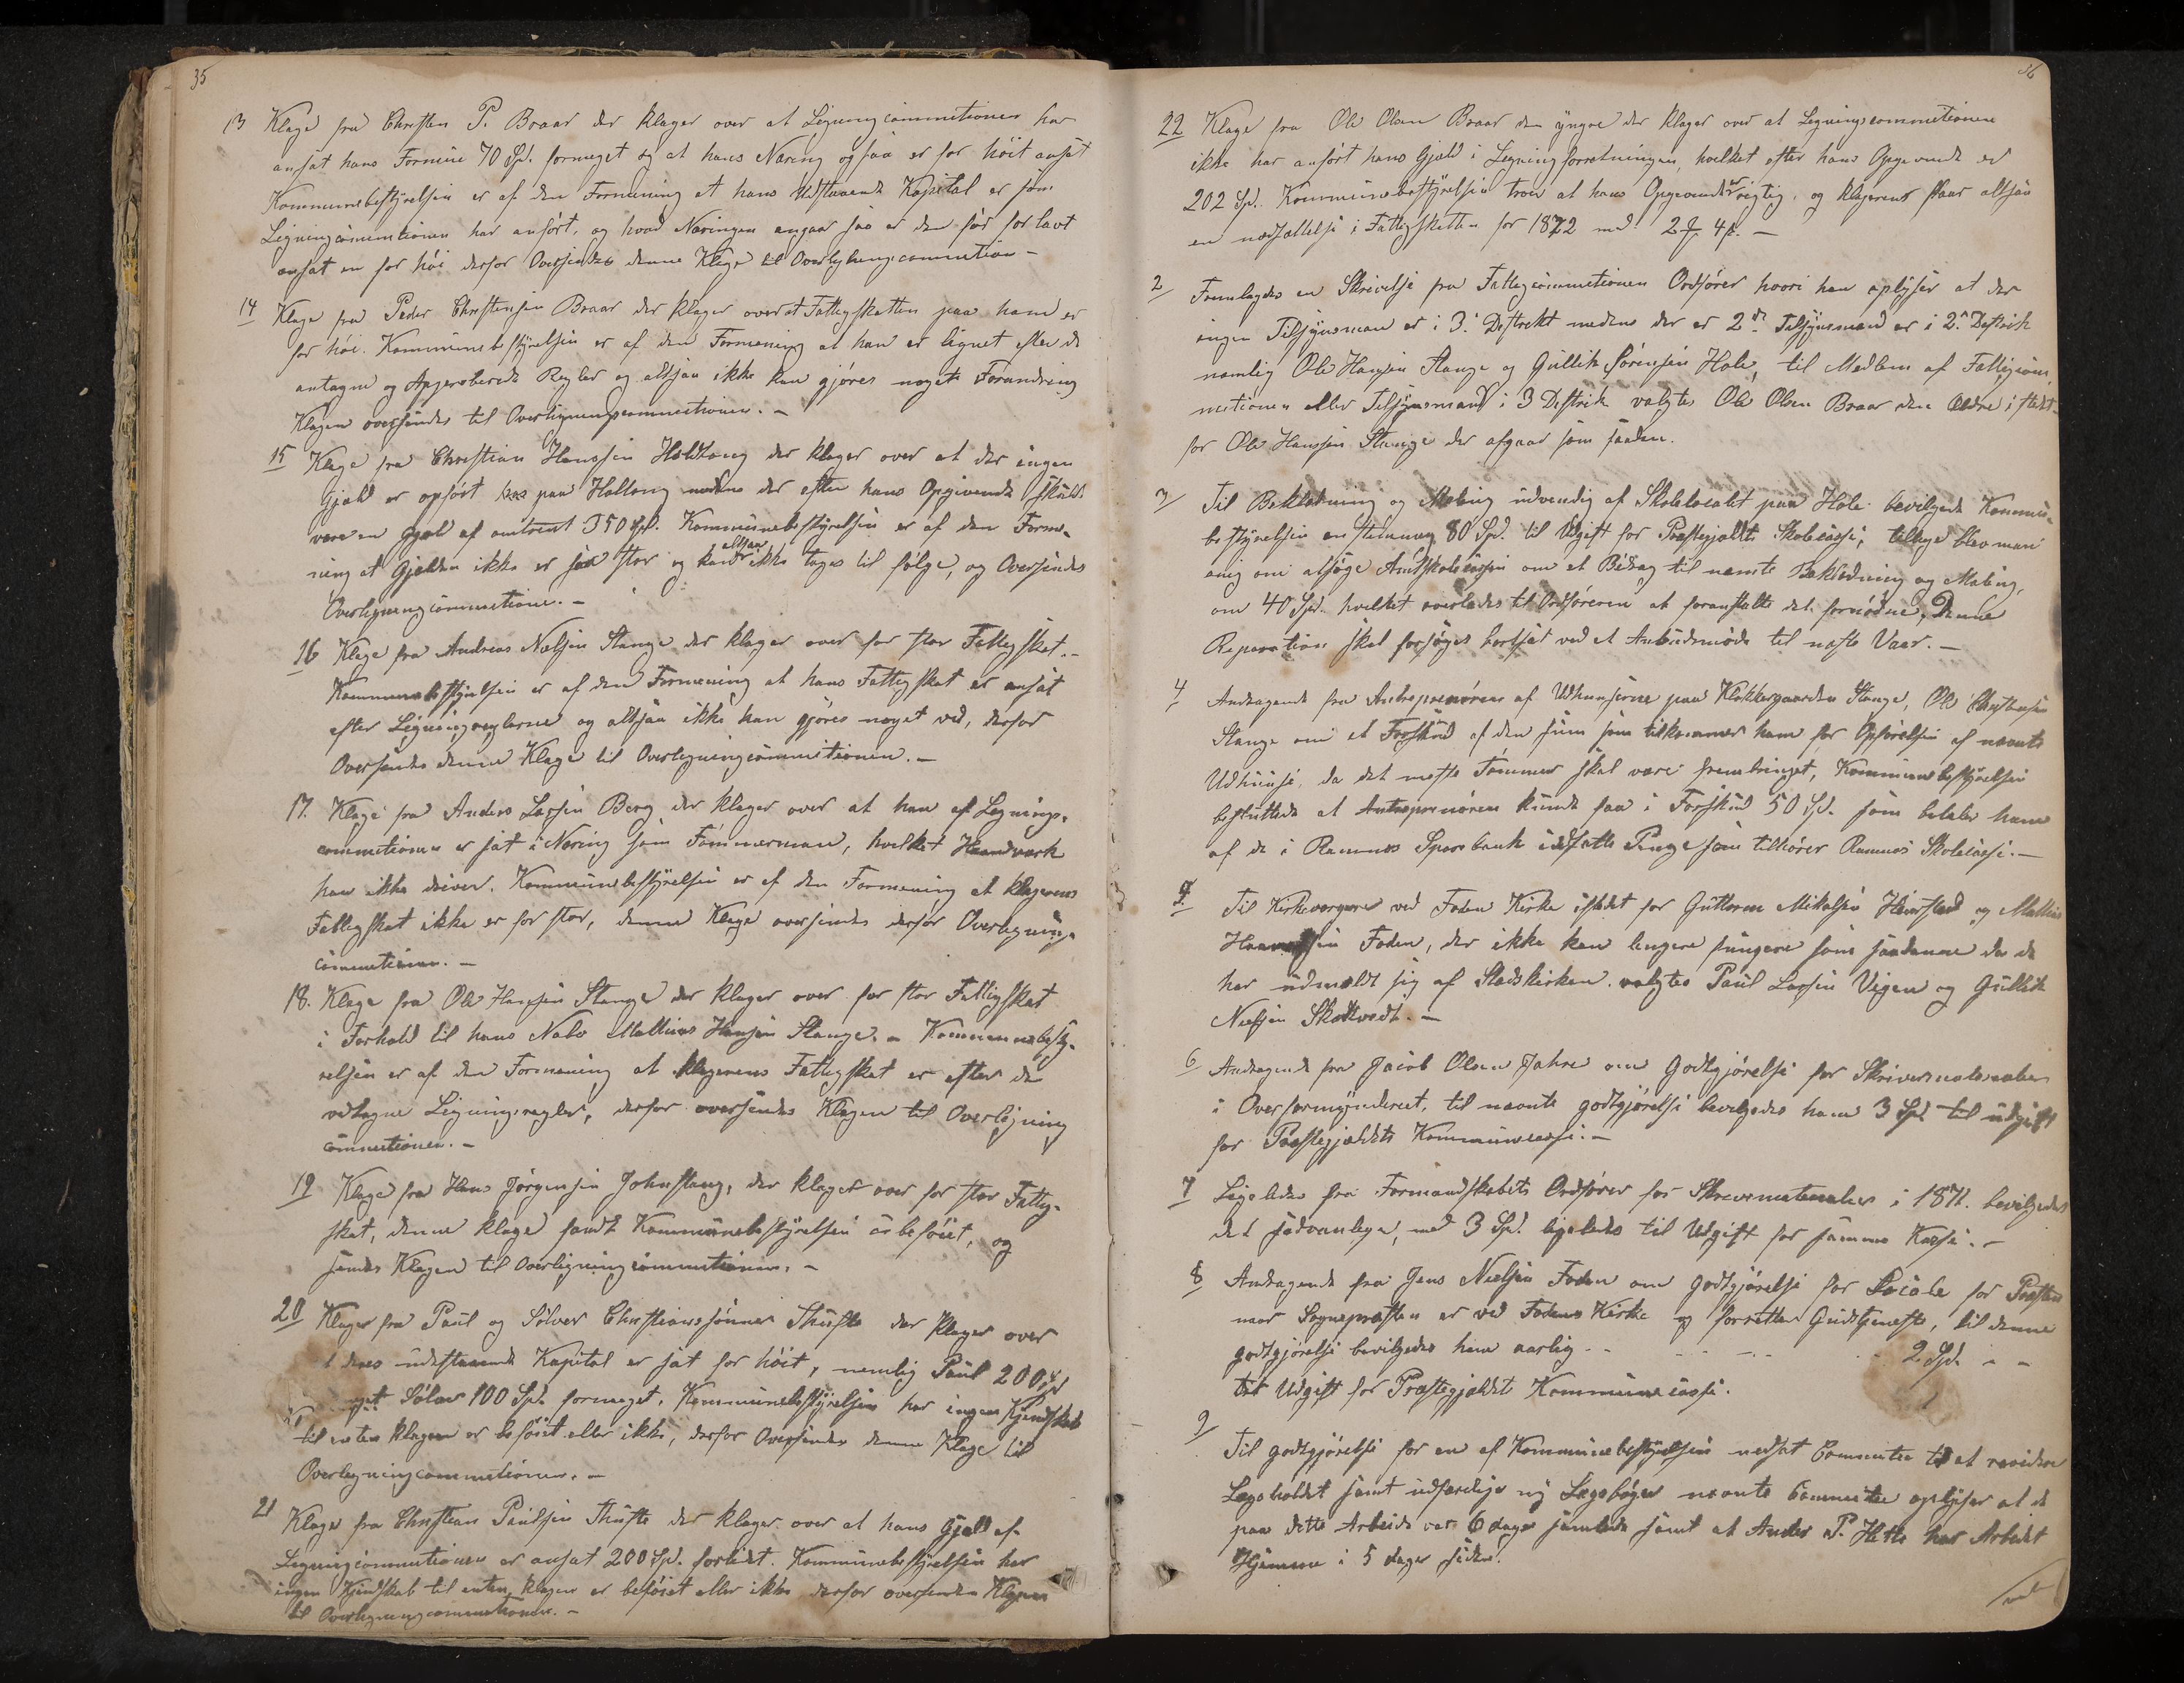 35
13 Klage fra Christen P. Braar der klager over at Ligningcommitionen har
ansat hans Formue 70 Spd. formeget og at hans Næring ogsaa er for höit ansat
Kommunebestyrelsen er af den Formening at hans Udstaaende Kapital er som
Ligningcommitionen har anfört, og hvad Næringen angaar saa er den før for lavt
ansat en for höi derfor Oversendes denne Klage til Overligningscommition –
14 Klage fra Peder Christensen Braar der klager over at Fattigskatten paa ham er
for höi. Kommunebestyrelsen er af den Formening at han er lignet efter de
antagne og Approberede Regler og altsaa ikke kan gjöres noget Forandring
Klagen oversendes til Overligningscommitionen. –
15 Klage fra Christian Hanssen Holtong der klager over at der ingen
Gjæld er opfört paa Holtong medens der efter hans Opgivende skulde
være en Gjæld af omtrent 350 Spd. Kommunebestyrelsen er af den Forme-
ning at Gjælden ikke er saa stor og kand altsaa ikke tages til fölge, og Oversendes
Overligningcommitionen. –
16 Klage fra Andreas Nielsen Stange der klager over for stor Fattigskat. –
Kommunebestyrelsen er af den Formening at hans Fattigskat er ansat
efter Ligningreglerne og altsaa ikke kan gjöres noget ved, derfor
Oversendes denne Klage til Overligningcommitionen. –
17. Klage fra Anders Larsen Berg der klager over at han af Lignings-
commitionen er sat i Næring som Tömmermand, hvilket Haandværk
han ikke driver. Kommunebestyrelsen er af den Formening at klagerens
Fattigskat ikke er for stor, denne Klage oversendes derfor Overligning-
commitionen. –
18. Klage fra Ole Hanssen Stange der klager over for stor Fattigskat
i Forhold til hans Nabo Mathias Hansen Stange. – Kommunebesty-
relsen er af den Formening at klagerens Fattigskat er efter de
vedtagne Ligningsregler, derfor oversendes Klagen til Overligning
commitionen. –
19 Klage fra Hans Jörgensen Johnstang, der klager over for stor Fattig-
skat, denne klage fandt Kommunebestyrelsen ubeföiet, og
sendes Klagen til Overligningcommitionen. –
20 Klage fra Paul og Sölver Christianssönner Thufte der klager over
at deres udestaaende Kapital er sat for höit, nemlig Paul 200 Spd
Sölver 100 Spd. formeget. Kommunebestyrelsen har ingen Kjendskab
til enten klagen er beföiet eller ikke, derfor Oversendes denne Klage til
Overligningcommitionen. –
21 Klage fra Christian Paulsen Thufte der klager over at hans Gjæld af
Ligningcommitionen er ansat 200 Spd. forlidet. Kommunebestyrelsen har
ingen Kjendskab til enten klagen er beföiet eller ikke derfor oversendes Klagen
til Overligningcommitionen. –
36
22 Klage fra Ole Olsen Braar den yngre der klager over at Ligningscommitionen
ikke har anfört hans Gjæld i Ligningsforretningen, hvilket efter hans Opgivende er
202 Spd. Kommunebestyrelsen troer at hans Opgivende er rigtig, og klageren faar altsaa
en nedsættelse i Fattigskatten for 1872 med 2 4 –
2 Fremlagdes en Skrivelse fra Fattigcommitionens Ordförer hvori han oplyser at der
ingen Tilsynsmand er i 3. Distrikt medens der er 2de Tilsynsmænd er i 2. Distrik
nemlig Ole Hansen Stange og Gullik Sörensen Hole, til Medlem af Fattigcom-
mitionen eller Tilsynsmand i 3 Distrik valgtes Ole Olsen Braar den Ældre istedet
for Ole Hanssen Stange der afgaar som saadan.
3 Til Beklædning og Maling udvendig af Skolelocalet paa Hole bevilgede Kommune-
bestyrelsen enstemmig 80 Spd. til Udgift for Præstegjældets Skolecasse; tillige blev man
enig om atsöge Amtskolecassen om et Bidrag til nævnte Beklædning og Maling,
om 40 Spd. hvilket overlades til Ordföreren at foranstalte det fornödne, Denne
Reparation skal forsöges bortsat ved et Anbudsmöde til næste Vaar. –
4 Andragende fra Antreprenören af Udhusene paa Klokkergaarden Stange, Ole Christensen
Stange om et Forskud af den Sum som tilkommer ham for Opförelsen af nævnte
Udhuse, da det meste Tömmer skal være frembringet, Kommunebestyrelsen
besluttede at Antreprenören kunde faa i Forskud 50 Spd. som betales ham
af de i Ramnes Sparebank indsatte Penge som tilhörer Ramnes Skolecasse. –
Til Kirkeværgere ved Foden Kirke istedet for Guttorm Mikalsen Heierstad og Mathias
Foden, der ikke kan længere fungere som saadanne da de
har udmeldt sig af Statskirken valgtes Paul Larsen Vegen og Gullik
Nielsen Skotvedt. –
6 Andragende fra Jacob Olsen Jahre om Godtgjörelse for Skrivematerialier
i Overformynderiet, til nævnte godtgjörelse bevilgedes ham 3 Spd til udgift
for Præstegjældets Kommunecasse. –
7 Ligeledes fra Formandskabets Ordförer for Skrivematerialier i 1871. bevilgedes
det sædvanlige, med 3 Spd. ligeledes til Udgift for samme Kasse. –
8 Andragende fra Jens Nielsen Foden om godtgjörelse for Locale for Præsten
naar Sognepræsten er ved Fodens Kirke og forretter Gudstjeneste, til denne
godtgjörelse bevilgedes ham aarlig - - - - - 2 Spd. - -
til Udgift for Præstegjældets Kommunecasse.
9 Til godtgjörelse for en af Kommunebestyrelsen nedsat Committee til at revidere
Lægsholdet samt udfærdige ny Lægsböger nævnte Committee oplyser at de
paa dette Arbeide var 6 dage samlede samt at Anders P. Hotte har Arbeidet
Hjemme i 5 dager siden.